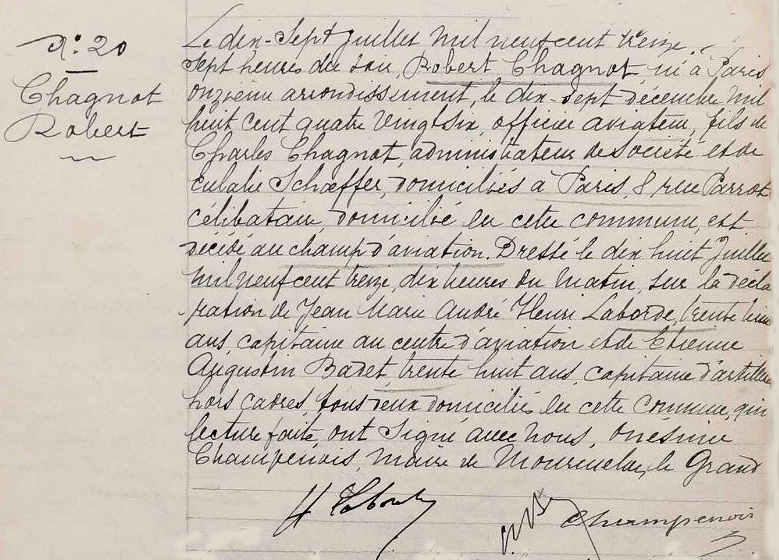 N: 20
Chagnot
Robert
Le dix-sept Juillet mil neuf cent treize,
sept heures du soir, Robert Chagnot, né à Paris
onzième arrondissement, le dix-sept décembre mil
huit cent quatre vingt six, officier aviateur, fils de
Charles Chagnot, administrateur de Société et de
Eulalie Schæffer, domiciliés à Paris, 8 rue Parrot
célibataire, domicilié en cette commune, est
décédé au champ d'aviation. Dressé le dix huit Juillet
mil neuf cent treize, dix heures du matin, sur la décla
ration de Jean Marie André Henri Laborde, trente
ans, capitaine au centre d'aviation et de Etienne
Augustin Badet, trente huit ans, capitaine d'artillerie
hors cadres, tous deux domiciliés en cette commune, qui
lecture faite, ont signé avec nous, Onésime
Champenois, maire de Mourmelon le Grand
H Laborde
Champenois